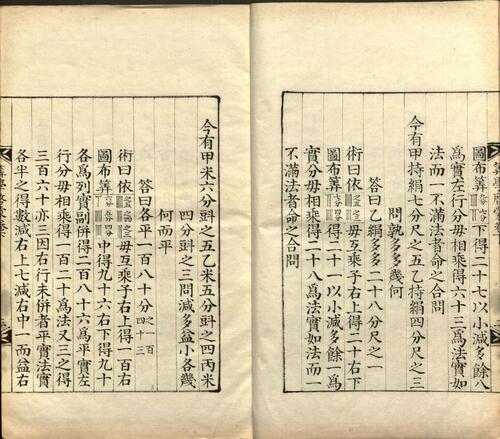 圖布筭下得二十七以小減多餘八
爲實左行分母相乘得六十三爲法實如
法而一不滿法者命之合問
今有甲持絹七分尺之五乙持絹四分尺之三
問孰多多幾何
答曰乙絹多多二十八分尺之一
術曰依母互乘子右上得二十右下
圖布筭得二十一以小減多餘一爲
實分母相乘得二十八爲法實如法而一
不滿法者命之合問
今有甲米六分㪷之五乙米五分㪷之四丙米
四分㪷之三問減多益小各幾
何而平
答曰各平一百八十分之一百四十三
術曰依母互乘子右上得一百右
圖布筭中得九十六右下得九十
各爲列實副併得二百八十六爲平實左
行分母相乘得一百二十爲法又三之得
三百六十亦三因右行未併者平實法實
各半之得數減右上七減右中一而益右